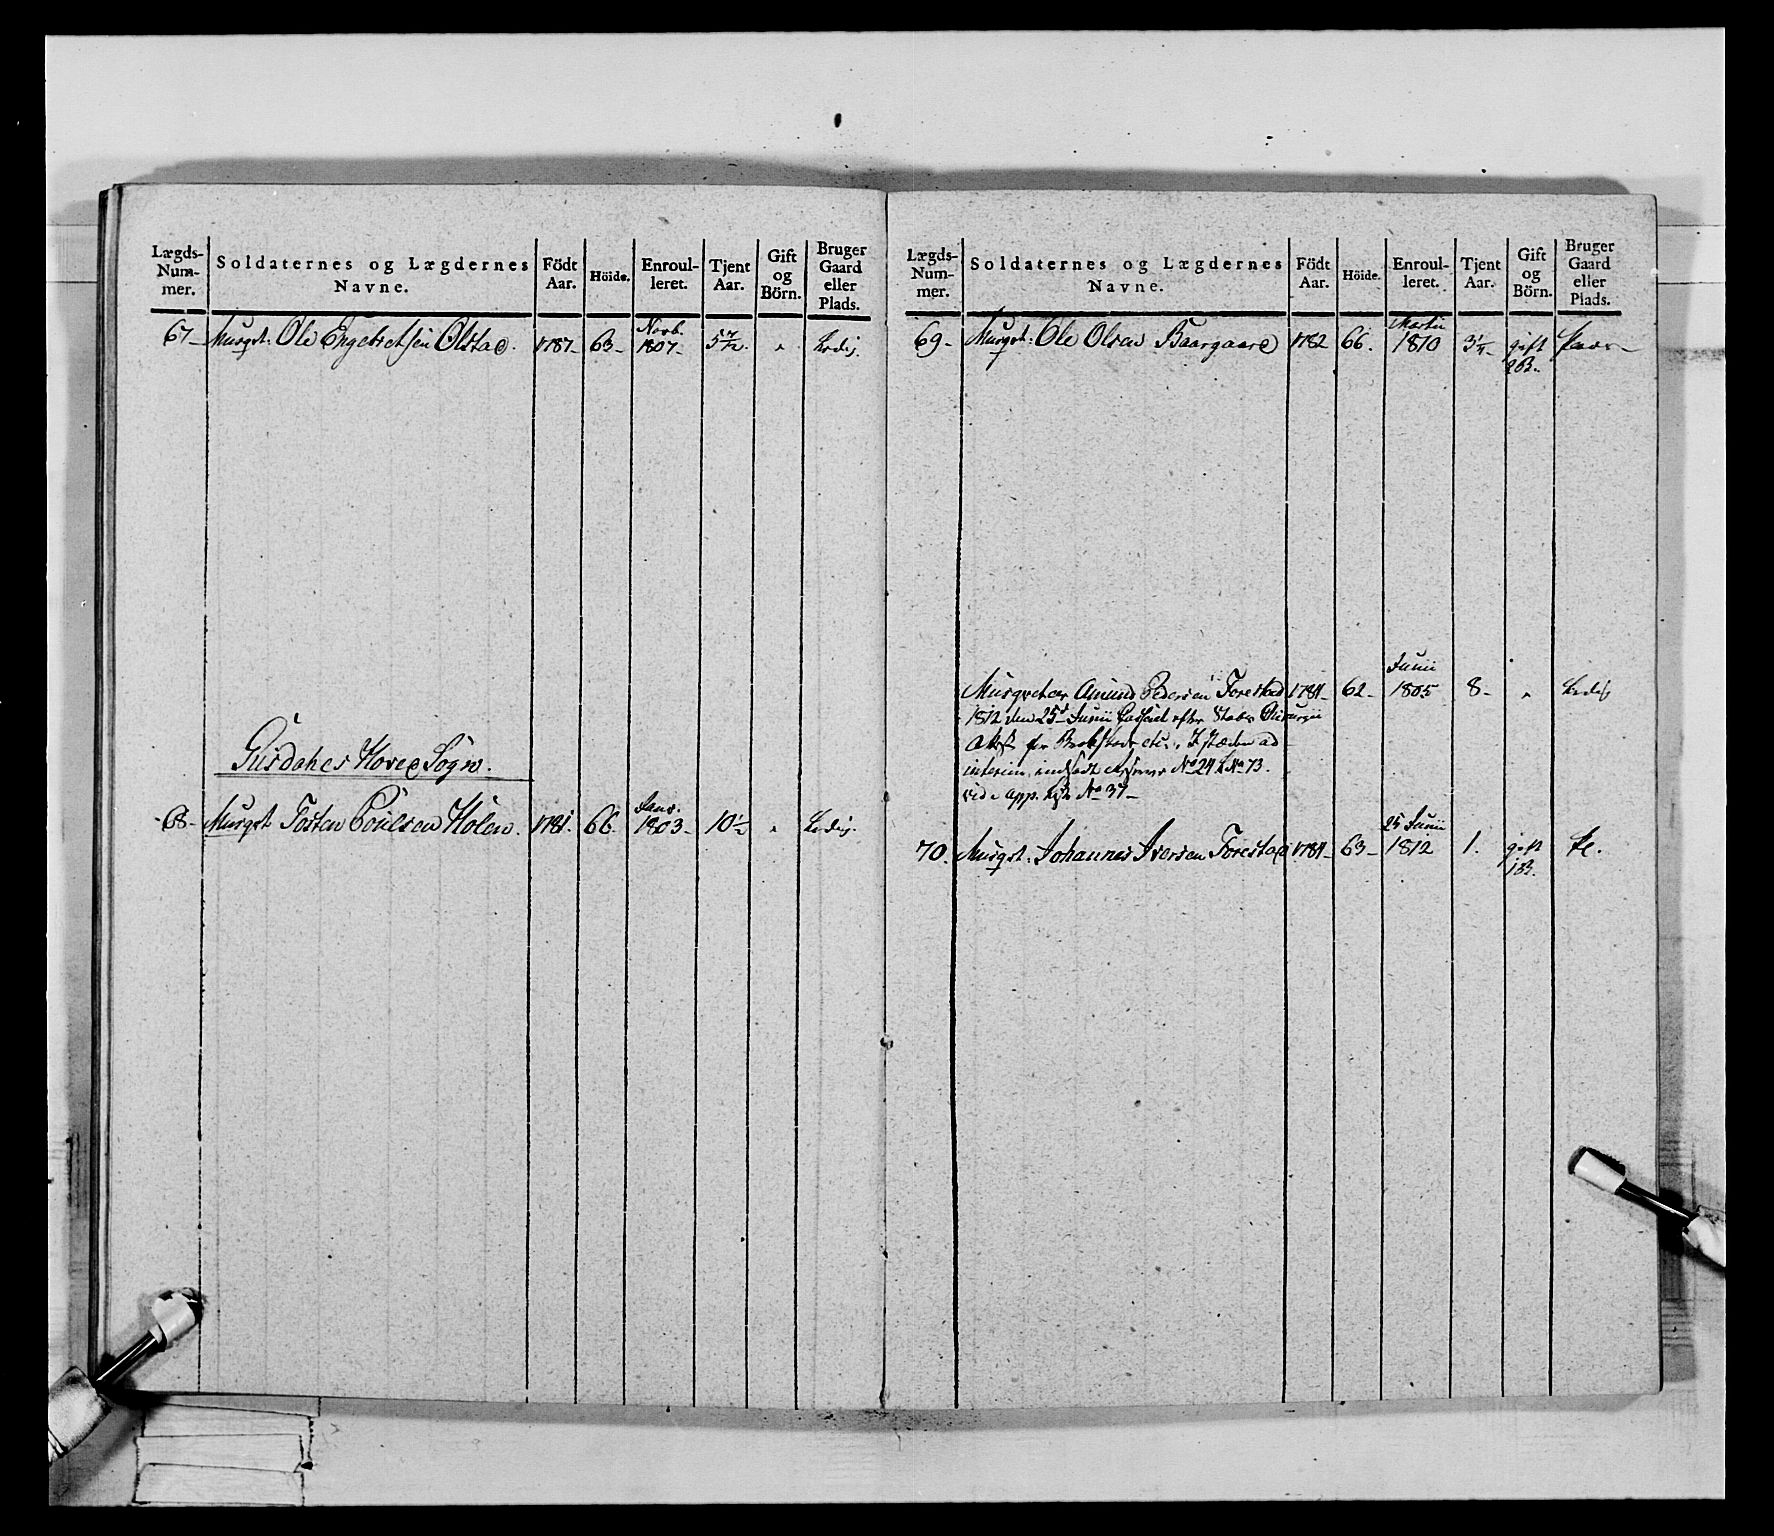 Lægds-Num-mer. Soldaternes og Lægdernes Navne. Födt Aar. Höide. Enroul-leret. Tjent Aar. Gift og Börn. Bruger Gaard eller Plads.
67- Musqt: Ole Engebretsen Olstad. 1787- 63- Novb. 1807- 5 7/12. " Ledig.
Gusdahls Hoved Sogn.
68- Musqt Tosten Poulsen Holen. 1781. 66. Janv. 1803- 10 1/2 " Ledig.
Lægds-Num-mer. Soldaternes og Lægdernes Navne. Födt Aar. Höide. Enroul-leret. Tjent Aar. Gift og Börn. Bruger Gaard eller Plads.
69- Musqt: Ole Olsen Baargaard 1782 66. Martii 1810 3 1/4- gift 2B.
Musqveteer Amund Pedersen Forestad 1784- 62- Junii 1805 8- " Ledig
1812 den 25d Junii Casseret efter Stabs Chirurgii
Attest for Brokskade etc. I stæden ad
interim indsadt No 24 No 73.
vide App. No 37-
70. Musqt: Johannes Iversen Forestad 1784- 63- 25 Junii 1812 1. gift 1B.